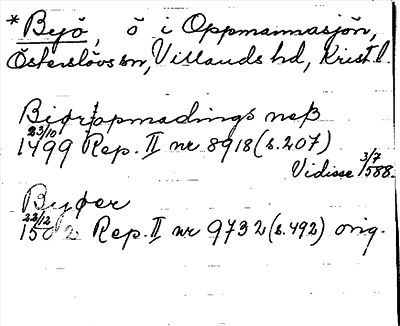 *Bejö, ö i Oppmannasjön,
Österslövs sn, Villands hd, Krist l.
Biørppmadings neß
23/10
1499 Rep. II nr 8918 (s. 207)
Vidisse 3/7 1588.
Byøer
22/12
1502 Rep. II nr 9732 (s. 492) orig.